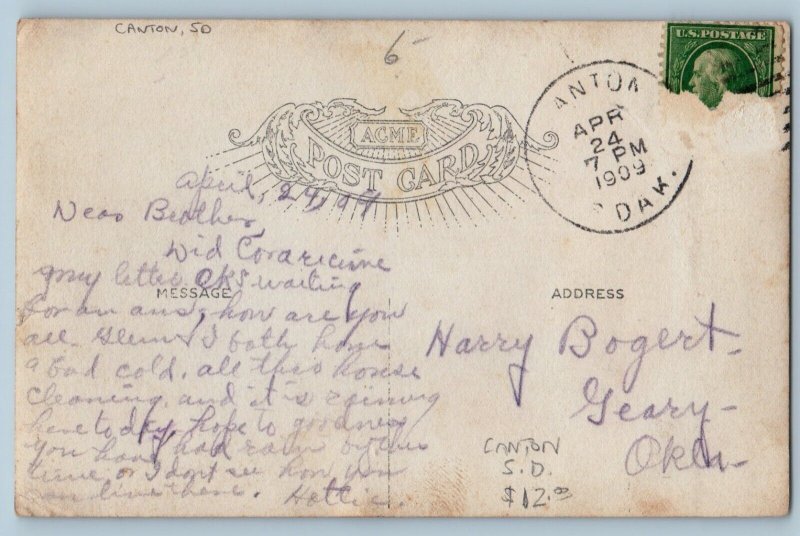 CANTON, SD
6
U.S. POSTAGE
ANTON
APR
24
7 PM
1909
DAK.
ACME
POST CARD
April, 24, 09
Dear Brother,
Did receive
my letter O.K. waiting
for an ans, how are you
all. Glenn & I both have
a bad cold. all this house
cleaning and it is raining
here today, hope to goodness
you have had rain by this
time or I dont see how you
can live there. Hattie.
MESSAGE
ADDRESS
Harry Bogert.
Geary-
Okla-
CANTON
S.D.
$12.00